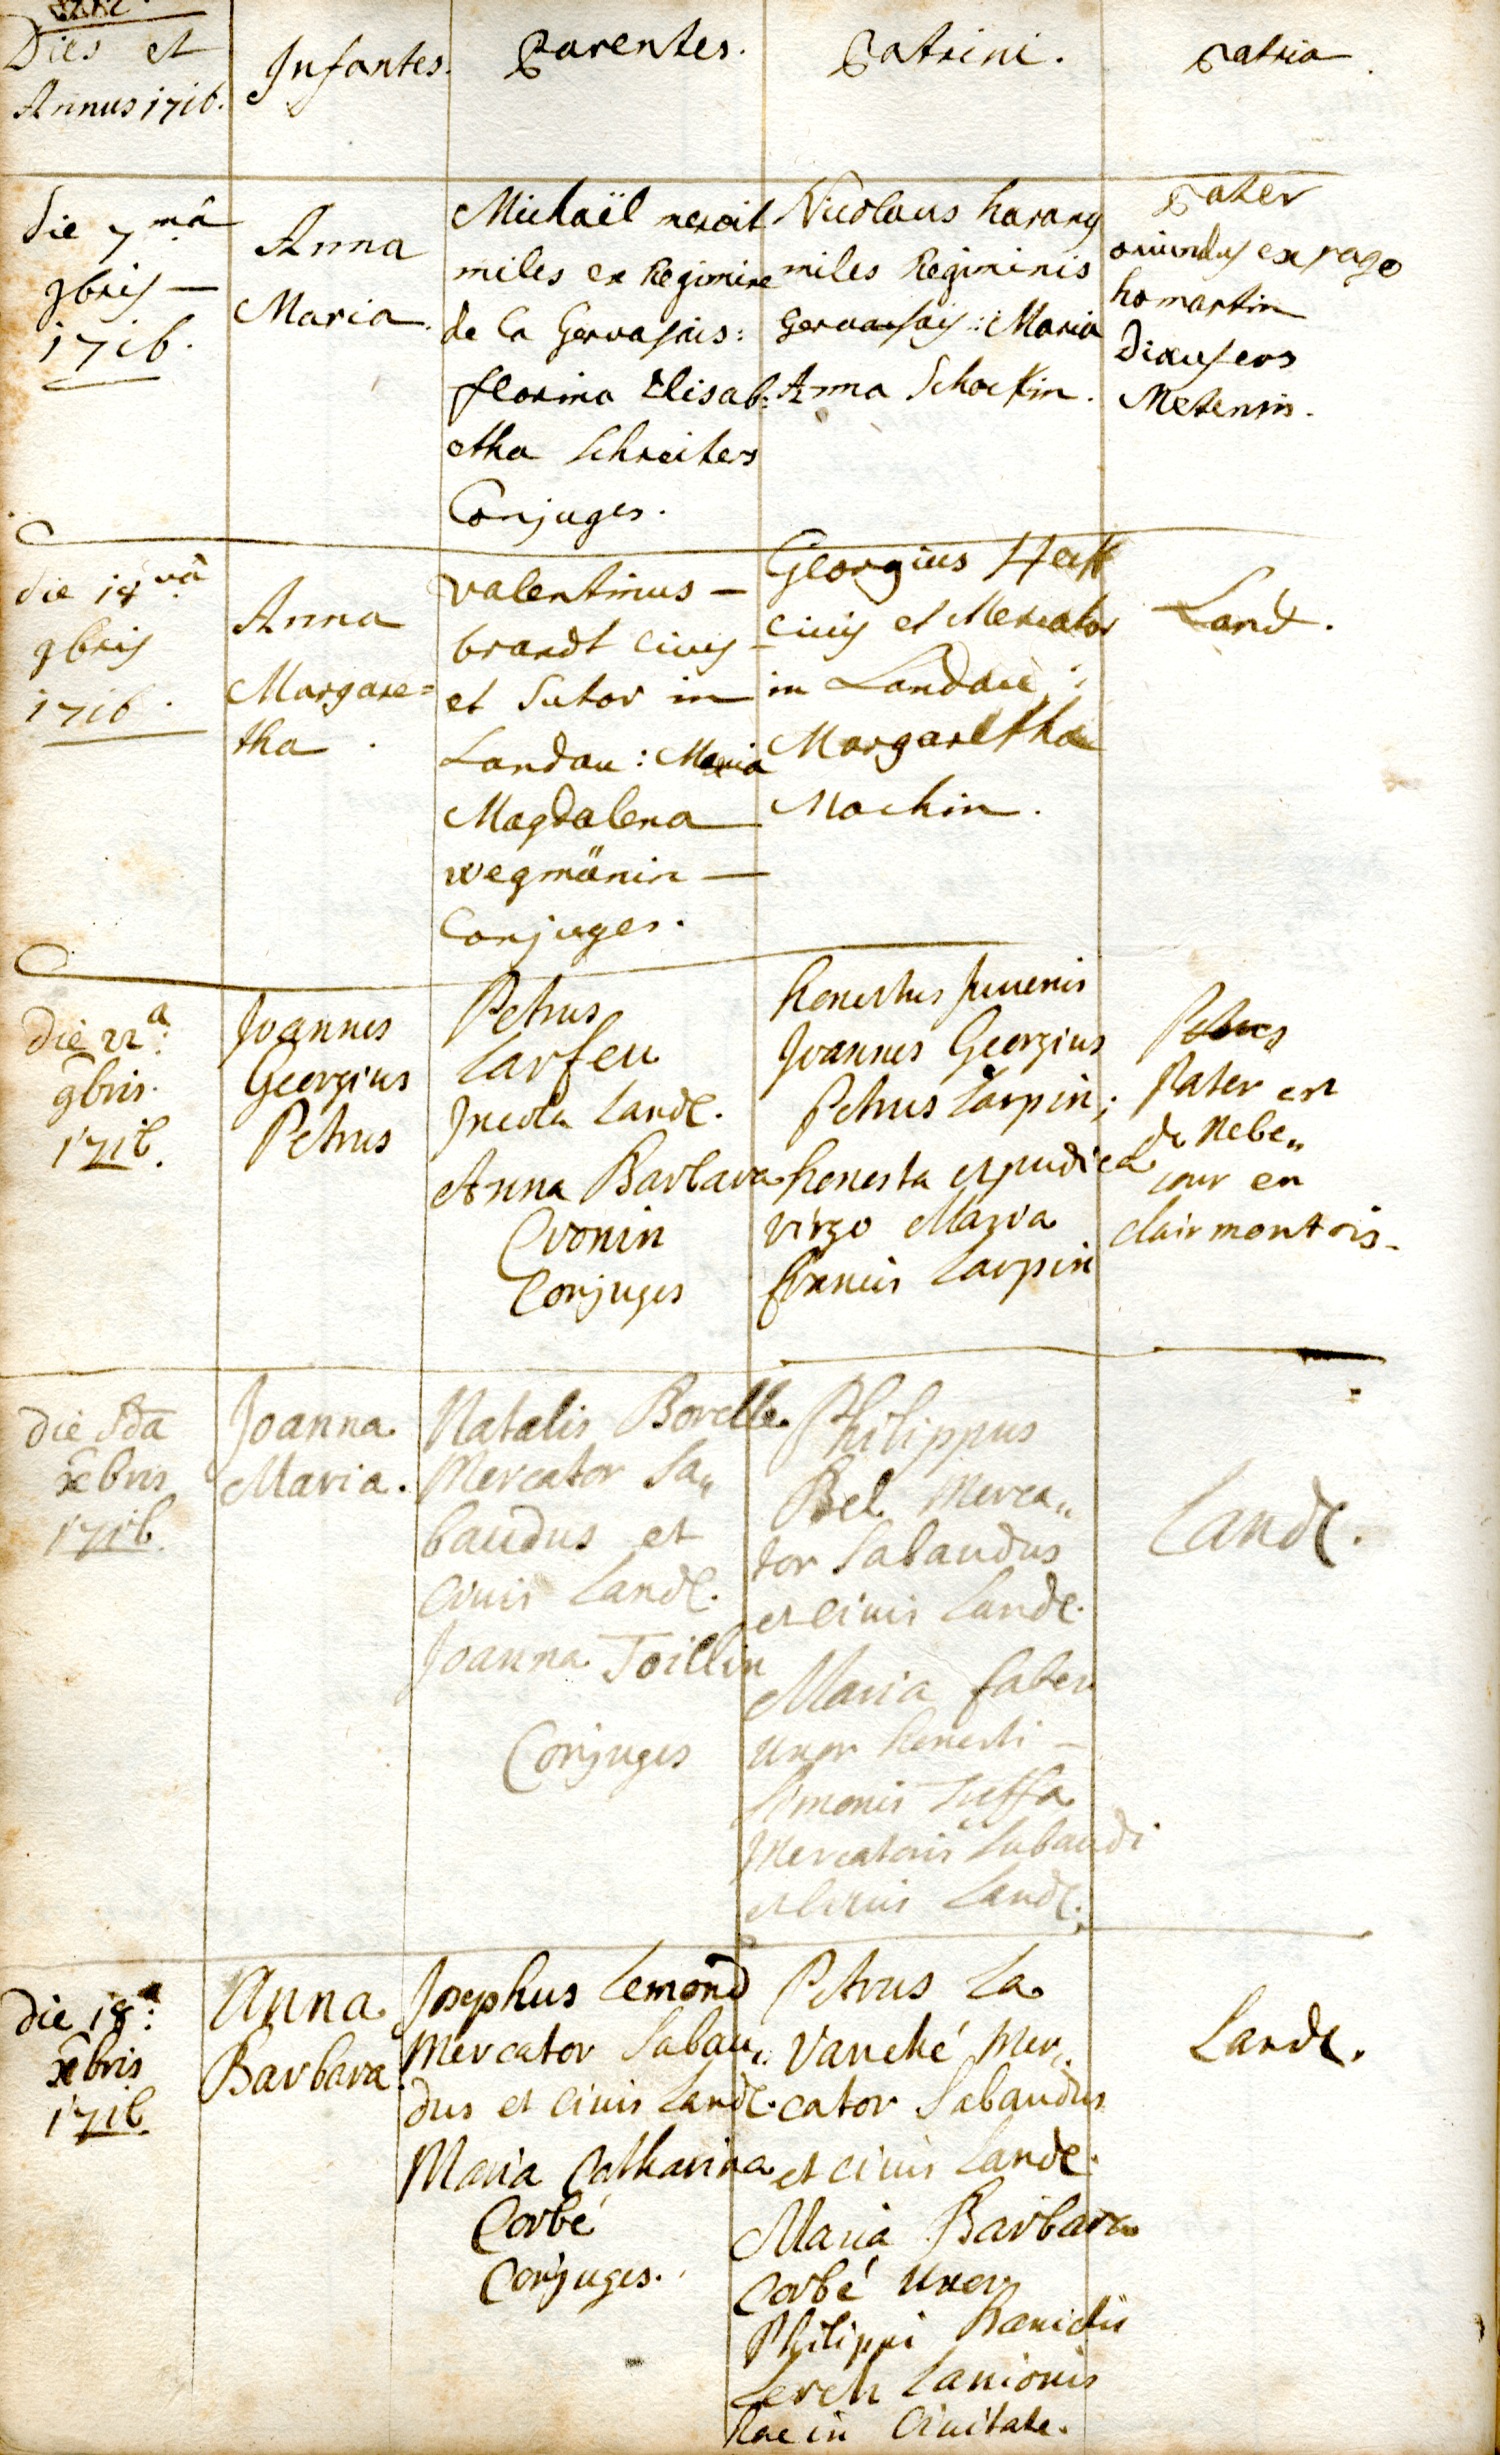 Dies et
Annus 1716.
Infantes.
Parentes.
Patrini.
Patria.
die 7mâ
9bris —
1716.
Anna
Maria.
Michaël
miles ex Regimine
de la Gervasais:
florina Elisab:
etha Schreiters
Conjuges.
Nicolaus harang
miles Regiminis
Gervasais: Maria
Anna Schockin.
Pater
oriundus ex pago
homartin
Metensis.
die 14va
9bris
1716.
Anna
Margare=
tha.
Valentinus —
brandt civis —
et Sutor in
Landau: Maria
Magdalena
wegmänin —
Conjuges.
Georgius Heck
civis et Mercator
in Landau:
Margaretha
Mackin.
Land.
die 22a:
9bris.
1716.
Joannes
Georgius
Petrus
Petrus
Larfeu
Incola Land.
Anna Barbara
Cronin
Conjuges
honestus Juvenis
Joannes Georgius
Petrus Larpin;
honesta et pudica
virgo Maria
francis Larpin
Pater est
de Nebe„
cour en
clairmontois.
die 2da
xbris
1716.
Joanna
Maria.
Natalis Borelle
Mercator Sa„
baudus et
Civis Land.
Joanna Toillin
Conjuges
Philippus
Bel Merca„
tor Sabaudus
et Civis Land.
Maria faber
uxor honesti —
Simonis
Mercatoris Sabaudi
et Civis Land.
Land.
die 18a:
xbris
1716
Anna
Barbara.
Josephus Lemond
Mercator Sabau„
dus et Civis Land.
Maria Catharina
Corbé
Conjuges.
Petrus La
Vanché Mer„
cator Sabaudus
et civis Land.
Maria Barbara
Corbé uxor
Philippi
Lerch Lanionis
hac in Civitate.
Land.